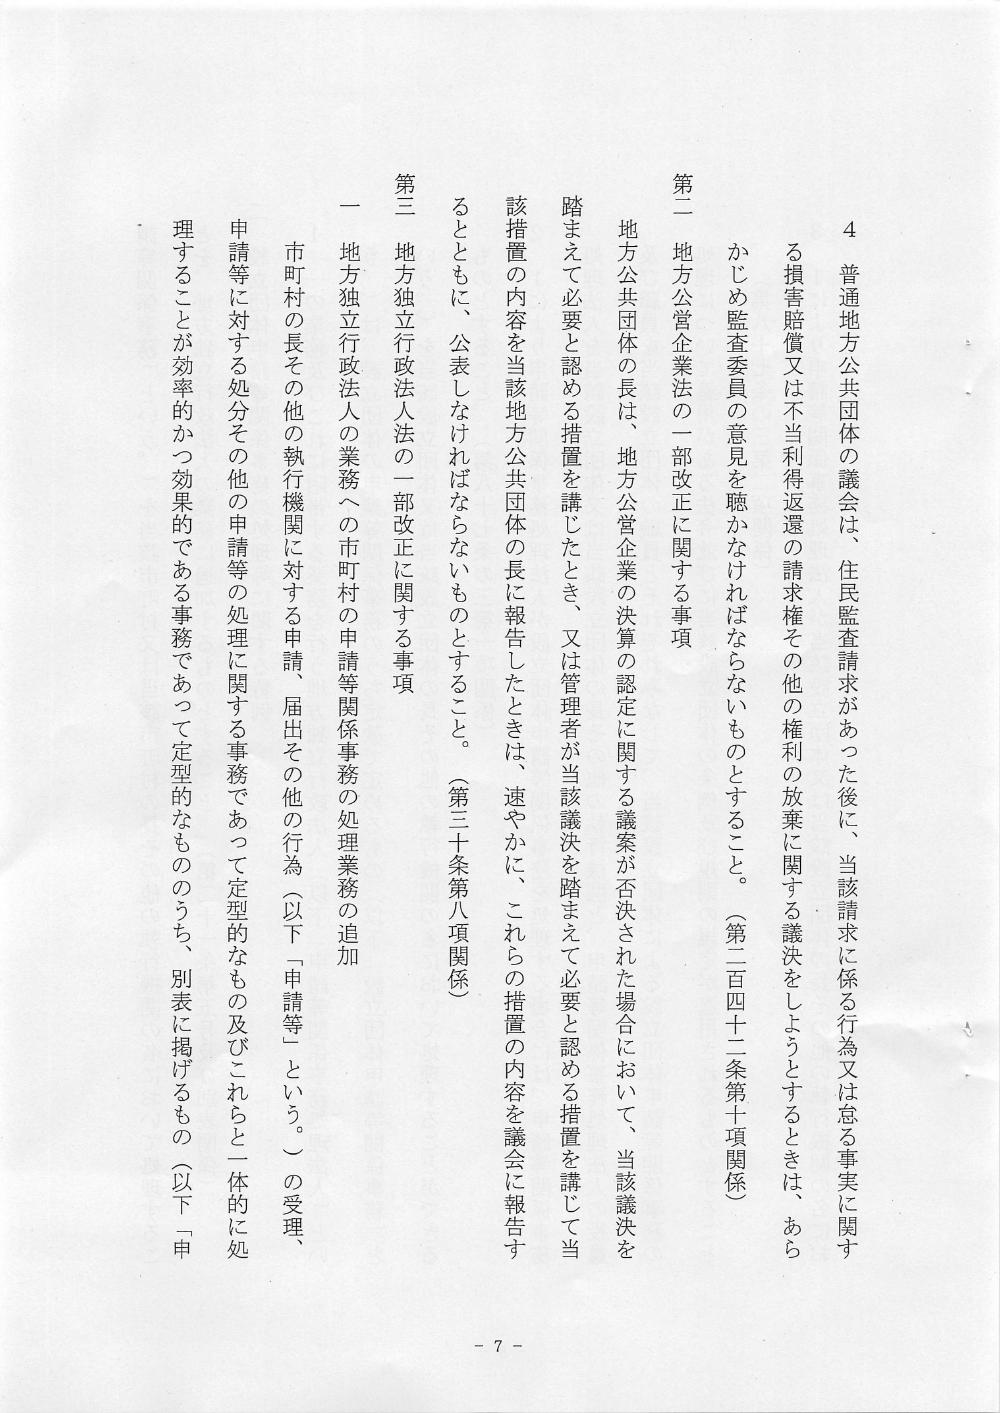 4　普通地方公共団体の議会は、住民監査請求があった後に、当該請求に係る行為又は怠る事実に関す
る損害賠償又は不当利得返還の請求権その他の権利の放棄に関する議決をしようとするときは、あら
かじめ監査委員の意見を聴かなければならないものとすること。（第二百四十二条第十項関係）
第二　地方公営企業法の一部改正に関する事項
地方公共団体の長は、地方公営企業の決算の認定に関する議案が否決された場合において、当該議決を
踏まえて必要と認める措置を講じたとき、又は管理者が当該議決を踏まえて必要と認める措置を講じて当
該措置の内容を当該地方公共団体の長に報告したときは、速やかに、これらの措置の内容を議会に報告す
るとともに、公表しなければならないものとすること。（第三十条第八項関係）
第三　地方独立行政法人法の一部改正に関する事項
一　地方独立行政法人の業務への市町村の申請等関係事務の処理業務の追加
市町村の長その他の執行機関に対する申請、届出その他の行為（以下「申請等」という。）の受理、
申請等に対する処分その他の申請等の処理に関する事務であって定型的なもの及びこれらと一体的に処
理することが効率的かつ効果的である事務であって定型的なもののうち、別表に掲げるもの（以下「申
- 7 -